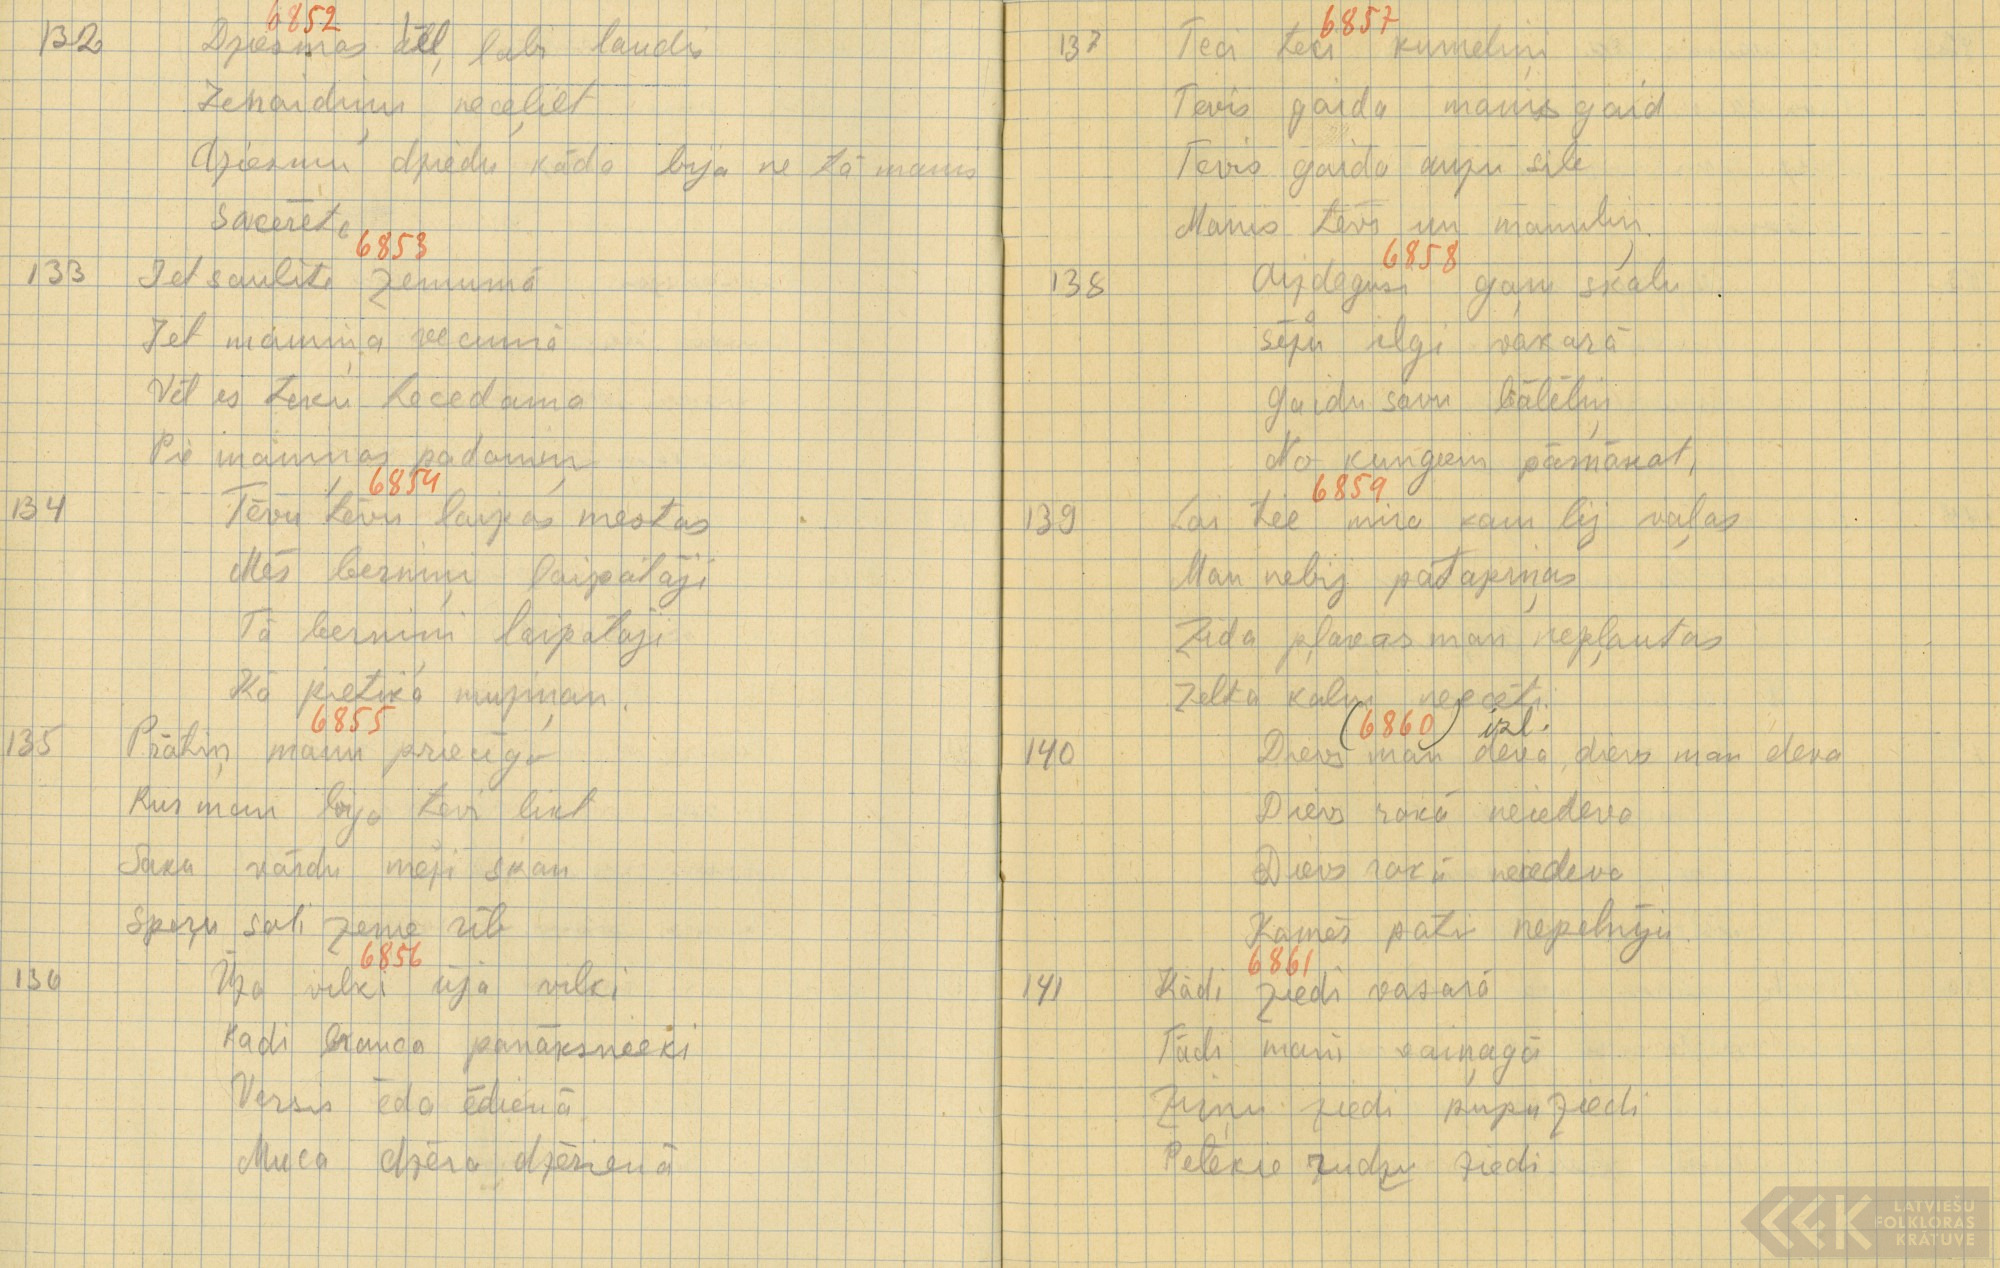 6852
132 Dziesmas dēļ, labi laudis
Jenaidiņu neceļiet
Dziesmu dziedu kāda bija ne tā manis
sacerēta
6853
133 Iet saulīte zemumā
Iet māmiņa vecumā
Vēl es teku tecedama
Pie māmiņas padomiņ
6854
134 Tēvu tēvu laipas mestas
Mēs berniņi laipātāji
Tā berniņi laipataji
Kā pietika mužiņam.
6855
135 Prātiņ manu priecīgo
Kur man bija tevi likt
Saku vārdu meži skan
Speru soli zeme rīb
6856
136 Ūja vilki ūja vilki
Kadi brauca panāksneeki
Versis ēda ēdienā
Muca dzēra dzērienā
6857
137 Teci teci kumeliņi
Tevis gaida manis gaid
Tevis gaida auzu sile
Manis tēvs un māmuliņ.
6858
138 Aizdegusi gaŗu skalu
sēžu ilgi vakarā
Gaidu savu bālēliņ
No kungeem pārnākat,
6859
139 Lai tee mira kam bij vaļas
Man nebij pātapiņas
Zīda pļavas man nepļautas
Zelta kalni neecēti.
(6860) izl.
140 Dievs man deva, dievs man deva
Dievs rokā neiedeva
Dievs rokā neiedeva
Kamēr pati nepelnīju
6861
141 Kādi ziedi vasarā
Tādi mani vaiņagā
Ziņņu ziedi pupu ziedi
Pelēkie rudzu ziedi.
LATVIEŠU
FOLKLORAS
KRĀTUVE